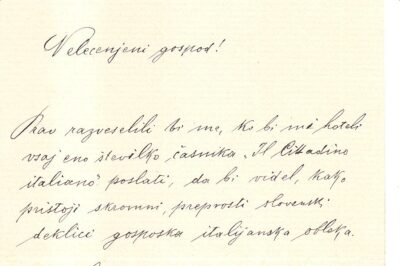 Velecenjeni gospod!
Prav razveselili bi me, ko bi mi hoteli
vsaj eno številko časnika „Il Cittadino
italiano" poslati, da bi videl, kako
pristoji skromni, preprosti slovenski
deklici gosposka italijanska obleka.